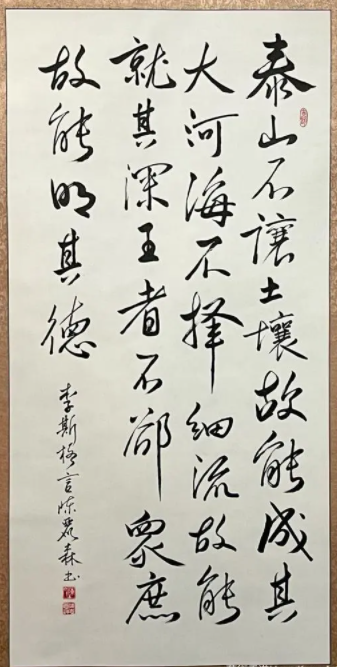 泰山不讓土壤故能成其
大河海不擇細流故能
就其深王者不郤眾庶
故能明其德
李斯格言陳農森书